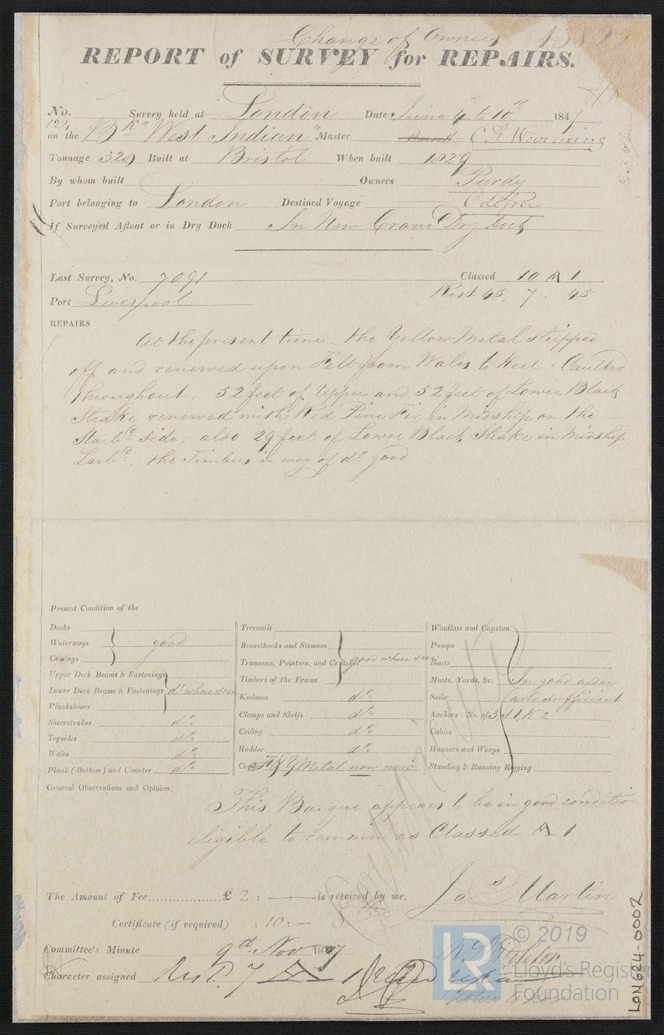 Change of Owners
REPORT of SURVEY for REPAIRS.
No. Survey held at London Date June 4th to 10th 1847
on the Bk "West Indian" Master C. J.
Tonnage 329 Built at Bristol When built 1829
By whom built Owners Purdy
Port belonging to London Destined Voyage Odessa
If Surveyed Afloat or in Dry Dock In New Crane Dry Dock
Last Survey, No. 7091 Classed 10 A 1
Port Liverpool Rest 45. 7. 45
REPAIRS
At the present time. the Yellow Metal stripped
off and renewed upon Felt from Wales to Keel. Caulked
throughout. 52 feet of Upper and 52 feet of Lower Black
Strake renewed with Red Pine Fir in Midship on the
Starbd. side. also 29 feet of Lower Black Strake in Midship
Larbd. the Timbers in way of do good
Present Condition of the
Decks
Waterways good
Comings
Upper Deck Beams & Fastenings
Lower Deck Beams & Fastenings do where seen
Planksheers
Sheerstrakes do
Topsides do
Wales do
Plank (Bottom) and Counter do
Treenails
Breasthooks and Stemson
Transoms, Pointers, and Crutches good where seen
Timbers of the Frame
Keelsons do
Clamps and Shelfs do
Ceiling do
Rudder do
Y Metal now new
Windlass and Capstan
Pumps
Boats
Masts, Yards, &c. In good order
Sails and sufficient
Anchors No. of 3 S 1 K 2
Cables
Hawsers and Warps
Standing & Running Rigging
General Observations and Opinion,
This Barque appears to be in good condition
eligible to remain as Classed A 1
The Amount of Fee £ 2 : is received by me,
Jas Martin
Certificate (if required) : 10 : —
Committee's Minute 9th Nov 1847
Character assigned Rest. 7
© 2019
LR
Lloyd's Register
Foundation
LON624-0002